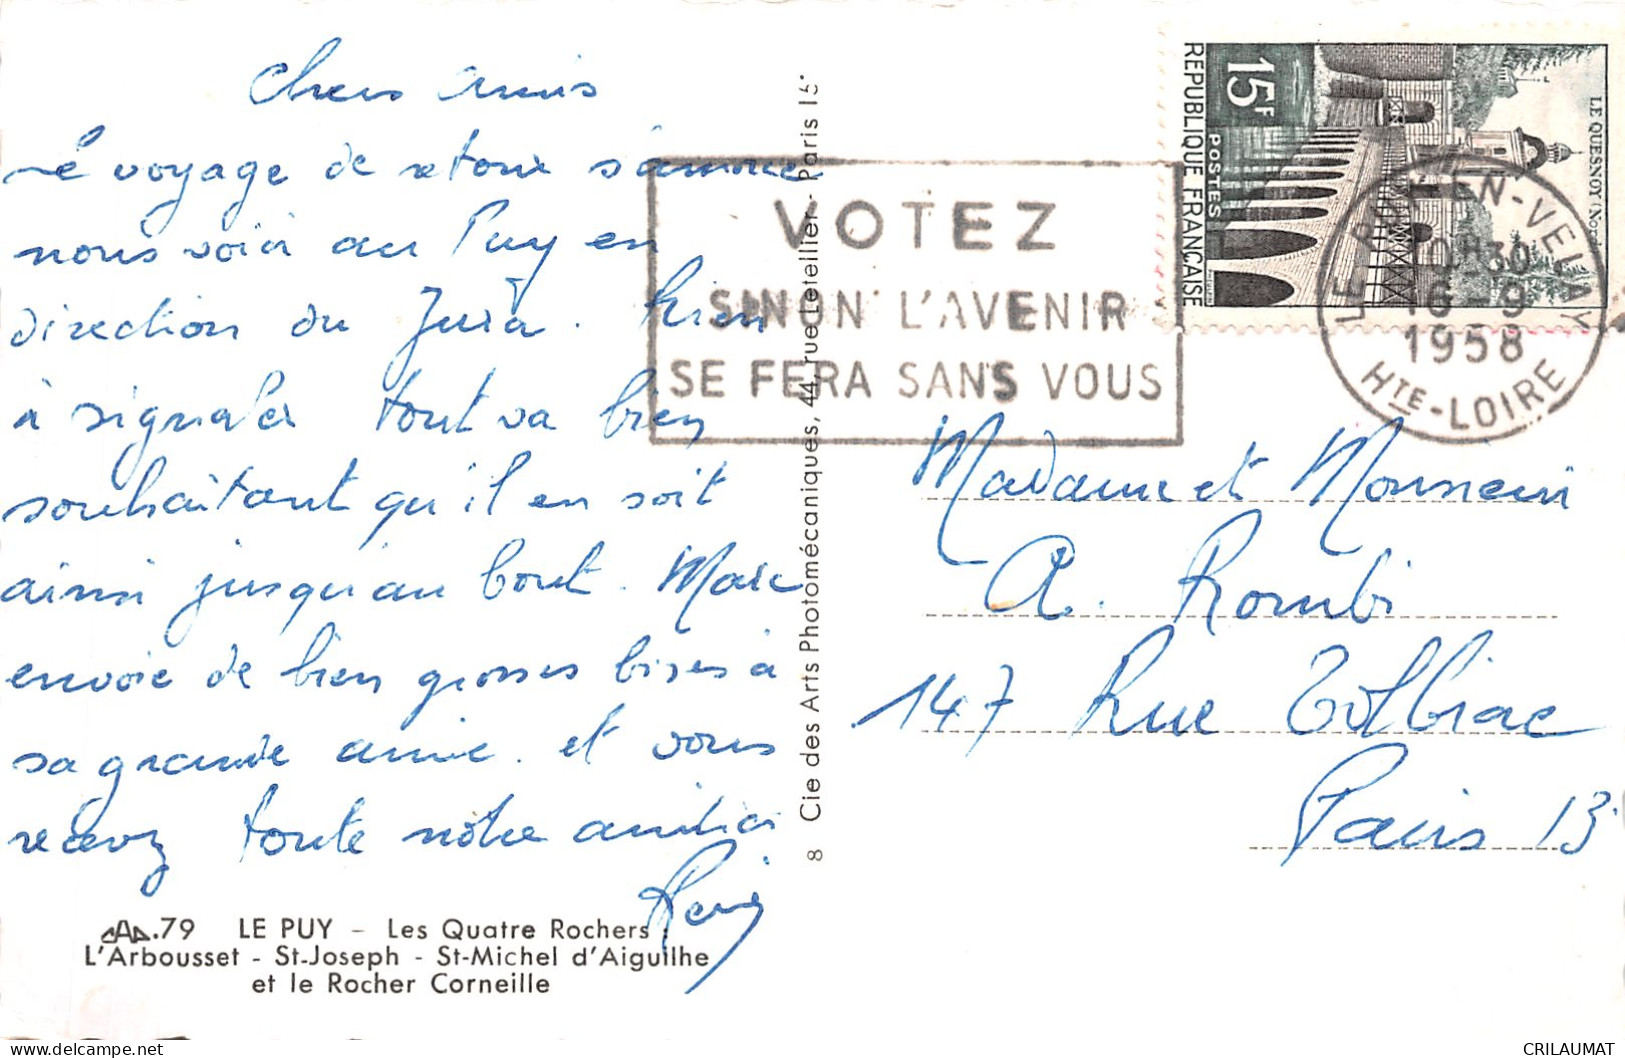 Chers Amis
Le voyage de retour s'amorce
nous voici au Puy en
direction du Jura. Rien
à signaler tout va bien
souhaitant qu'il en soit
ainsi jusqu'au bout. Marc
envoie de bien grosses bises à
sa grande amie. et vous
recevez toute notre amitié
LE PUY - Les Quatre Rochers :
L'Arbousset - St-Joseph - St-Michel d'Aiguilhe
et le Rocher Corneille
8 Cie des Arts Photomécaniques, 44, rue Letellier - Paris 15e
VOTEZ
SINON L'AVENIR
SE FERA SANS VOUS
15F
POSTES
REPUBLIQUE FRANÇAISE
LE QUESNOY (Nord)
LE PUY-EN-VELAY
10H30
16-9
1958
HTE-LOIRE
Madame et Monsieur
A. Rombi
147 Rue Tolbiac
Paris 13
delcampe.net
CRILAUMAT